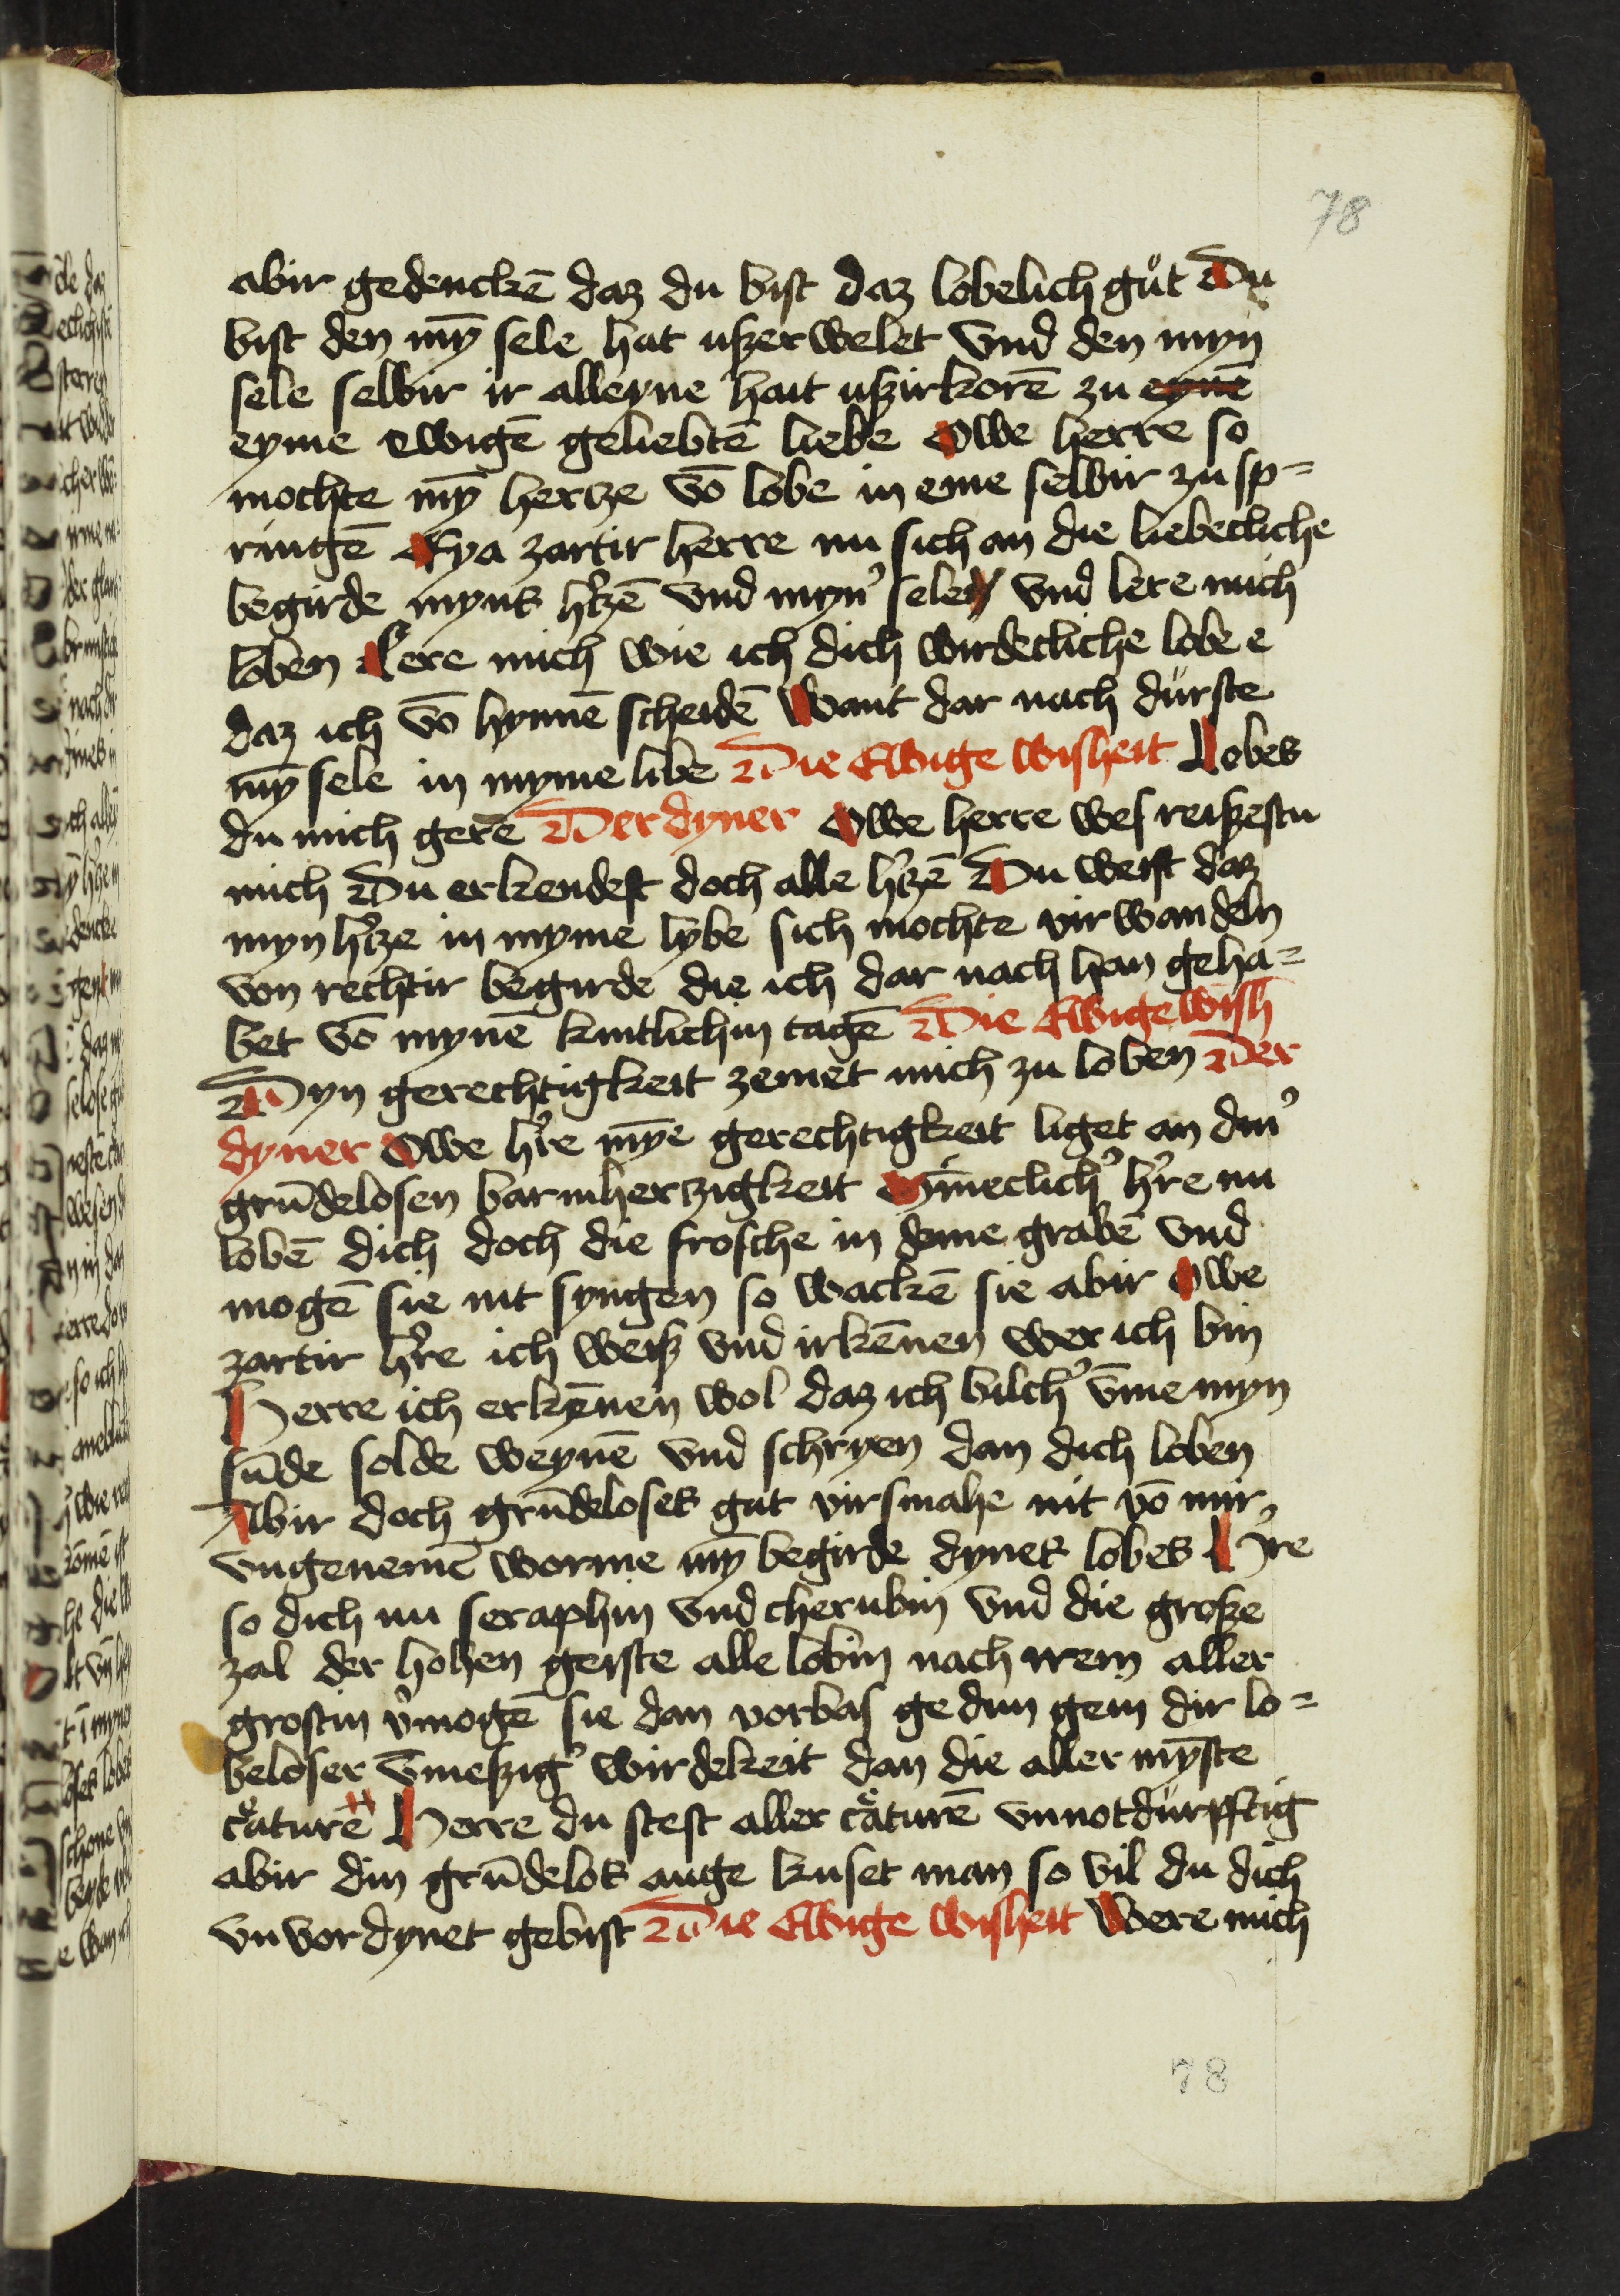 78
abir gedenckē daz du bist daz lobelich gůt Du
bist den mȳ sele hat uszerwelet vnd den myn
sele selbir ir alleyne hait uszirkorē zu eynē
eyme ewigē geliebtē liebe Owe herre so
mochte mȳ hertze vō lobe in eme selbir zu sp=
ringē Eya zartir herre nu sich an die liebecliche
begirde myns h'tzē vnd myn' sele vnd lere mich
loben Lere mich wie ich dich wirdecliche lobe e
daz ich vō hynnē scheidē Want dar nach dürste
mȳ sele in myme libe Die Ewige wisheit Lobes
du mich gerē Der dyner Owe herre wes reiszestu
mich Du erkendest doch alle h'tzē Du weist daz
myn h'tze in myme lybe sich mochte vir wandeln
von rechtir begirde die ich dar nach han geha=
bet vō mynē kintlichin tagē Die Ewige wish
Dyn gerechtigkeit zemet mich zu loben Der
dyner Owe h're mȳe gerechtigkeit liget an din'
grūdelosen barmherzigkeit Mīneclich' h're nu
lobē dich doch die frosche in deme grabē vnd
mogē sie nit syngen so wackē sie abir Owe
zartir h're ich weisz vnd irkēnen wer ich bin
Herre ich erkēnen wol daz ich bilch' v̄me myn
sūde solde weynē vnd schryen dan dich loben
Abir doch grūdeloses gut virsmahe nit vō mir
vngenemē worme mȳ begirde dynes lobes H're
so dich nu seraphin vnd cherubin vnd die grosze
zal der hohen geiste alle lobin nach irem aller
grostin v'mogē sie dan vorbas gedun gein dir lo=
beloser v̄meszig' wirdekeit dan die aller mȳste
c̊aturē Herre du stest aller c̊aturē vnnotdürpftig
abir din grūdelos auge kuset man so vil du dich
vnvordynet gebist Die Ewige wisheit Were mich
78